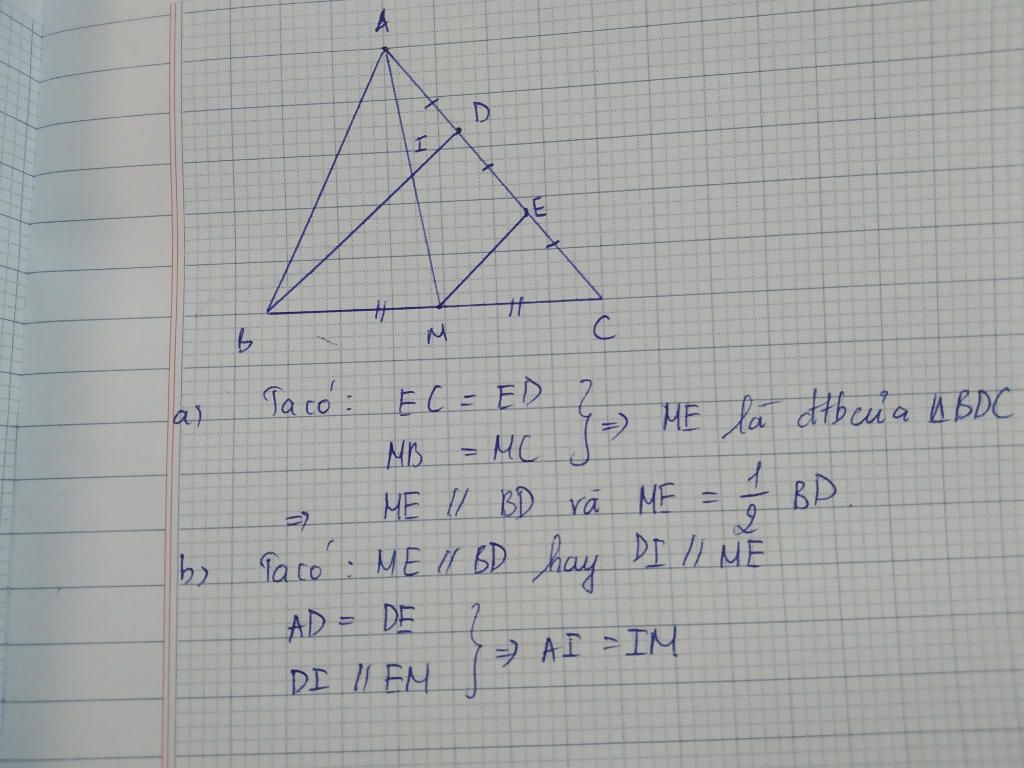 A
D
I
E
B
M
C
a) Ta có: EC = ED
MB = MC } => ME là đtb của ΔBDC
=> ME // BD và ME = 1/2 BD.
b) Ta có: ME // BD hay DI // ME
AD = DE
DI // EM } => AI = IM